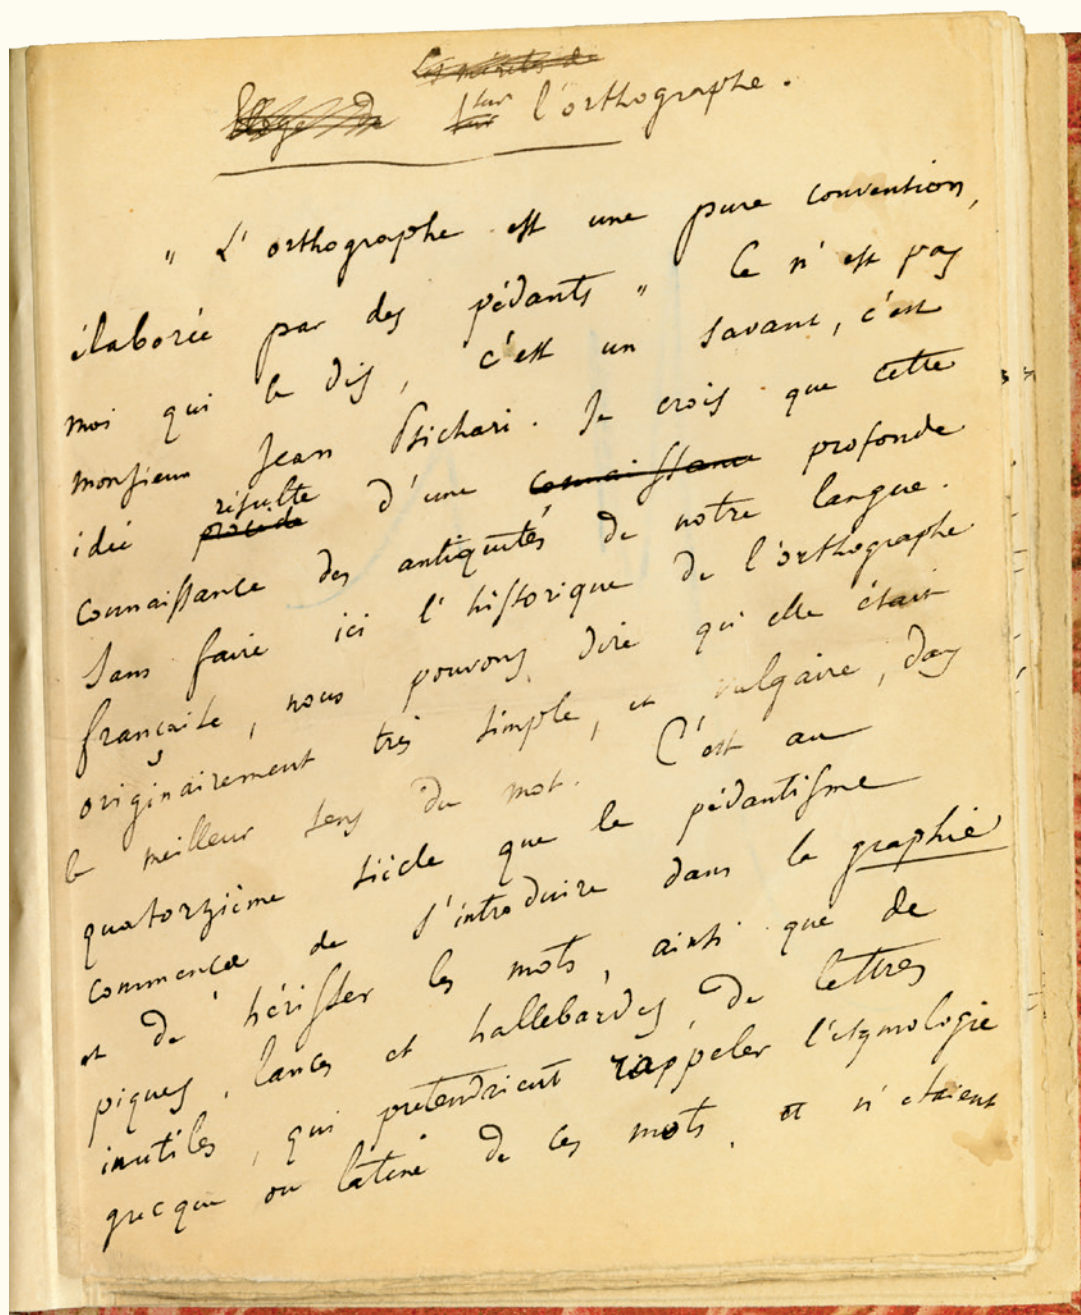 Les mérites de
Eloge de sur sur l'orthographe.
" L'orthographe est une pure convention,
élaborée par des pédants " Ce n'est pas
moi qui le dis, c'est un savant, c'est
monsieur Jean Psichari. Je crois que cette
résulte
idée procède d'une connaissance profonde
connaissance des antiquités de notre langue.
Sans faire ici l'historique de l'orthographe
française, nous pouvons dire qu'elle était
originairement très simple, et vulgaire, dans
le meilleur sens du mot. C'est au
quatorzième siècle que le pédantisme
commence de s'introduire dans la graphie
et de hérisser les mots, ainsi que de
piques, lances et hallebardes, de lettres
inutiles, qui prétendrient rappeler l'etymologie
grecque ou latine de ces mots, et n'étaient